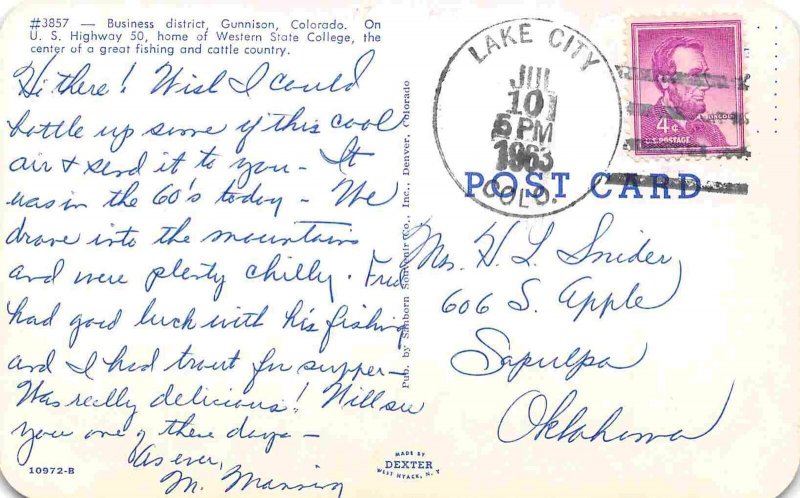 #3857 — Business district, Gunnison, Colorado. On
U. S. Highway 50, home of Western State College, the
center of a great fishing and cattle country.
Hi there! Wish I could
bottle up some of this cool
air & send it to you - It
was in the 60's today - We
drove into the mountains
and were plenty chilly. Fred
had good luck with his fishing
and I had trout for supper -
Was really delicious! Will see
you one of these days -
As ever,
M. Manning
10972-B
Pub. by Sanborn Souvenir Co., Inc., Denver, Colorado
MADE BY
DEXTER
WEST NYACK, N. Y.
LAKE CITY
JUL
10
5 PM
1963
COLO.
LINCOLN
4¢
U.S. POSTAGE
POST CARD
Mrs. H L Snider
606 S. Apple
Sapulpa
Oklahoma